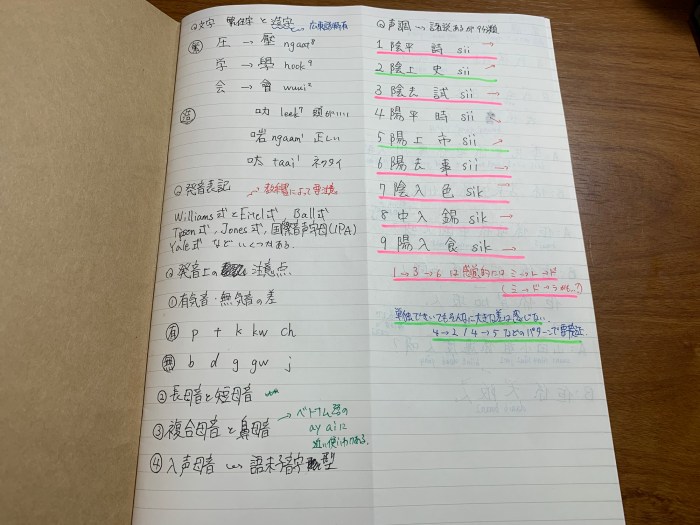 ◎文字 繁体字と造字 → 広東語特有
繁 圧 → 壓 ngaat⁸
学 → 學 hook⁹
会 → 會 wuui²
造 叻 leek⁷ 頭がいい
啱 ngaam¹ 正しい
呔 taai¹ ネクタイ
◎発音表記 → 教科書によって要注意
Williams式とEitel式 Ball式
Tpson式、Jones式、国際音声字母(IPA)
Yale式 などいくつかある。
◎発音上の注意点
①有気音・無気音の差
有 p t k kw ch
無 b d g gw j
②長母音と短母音
③複合母音と鼻母音 → ベトナム語の
ay aiに
近い使いわけがある。
④入声母音 語末子音字型
◎声調 → 諸説あるが9分類
1 陰平 詩 sii →
2 陰上 史 sii →
3 陰去 試 sii →
4 陽平 時 sii
5 陽上 市 sii →
6 陽去 事 sii →
7 陰入 色 sik →
8 中入 錫 sik →
9 陽入 食 sik →
1→3→6 は感覚的にはミ→レ→ド
(ミ→ド→ラかも?)
単独できいてもそんなに大きな差は感じない…
4→2 / 4→5 などのパターンで要注意